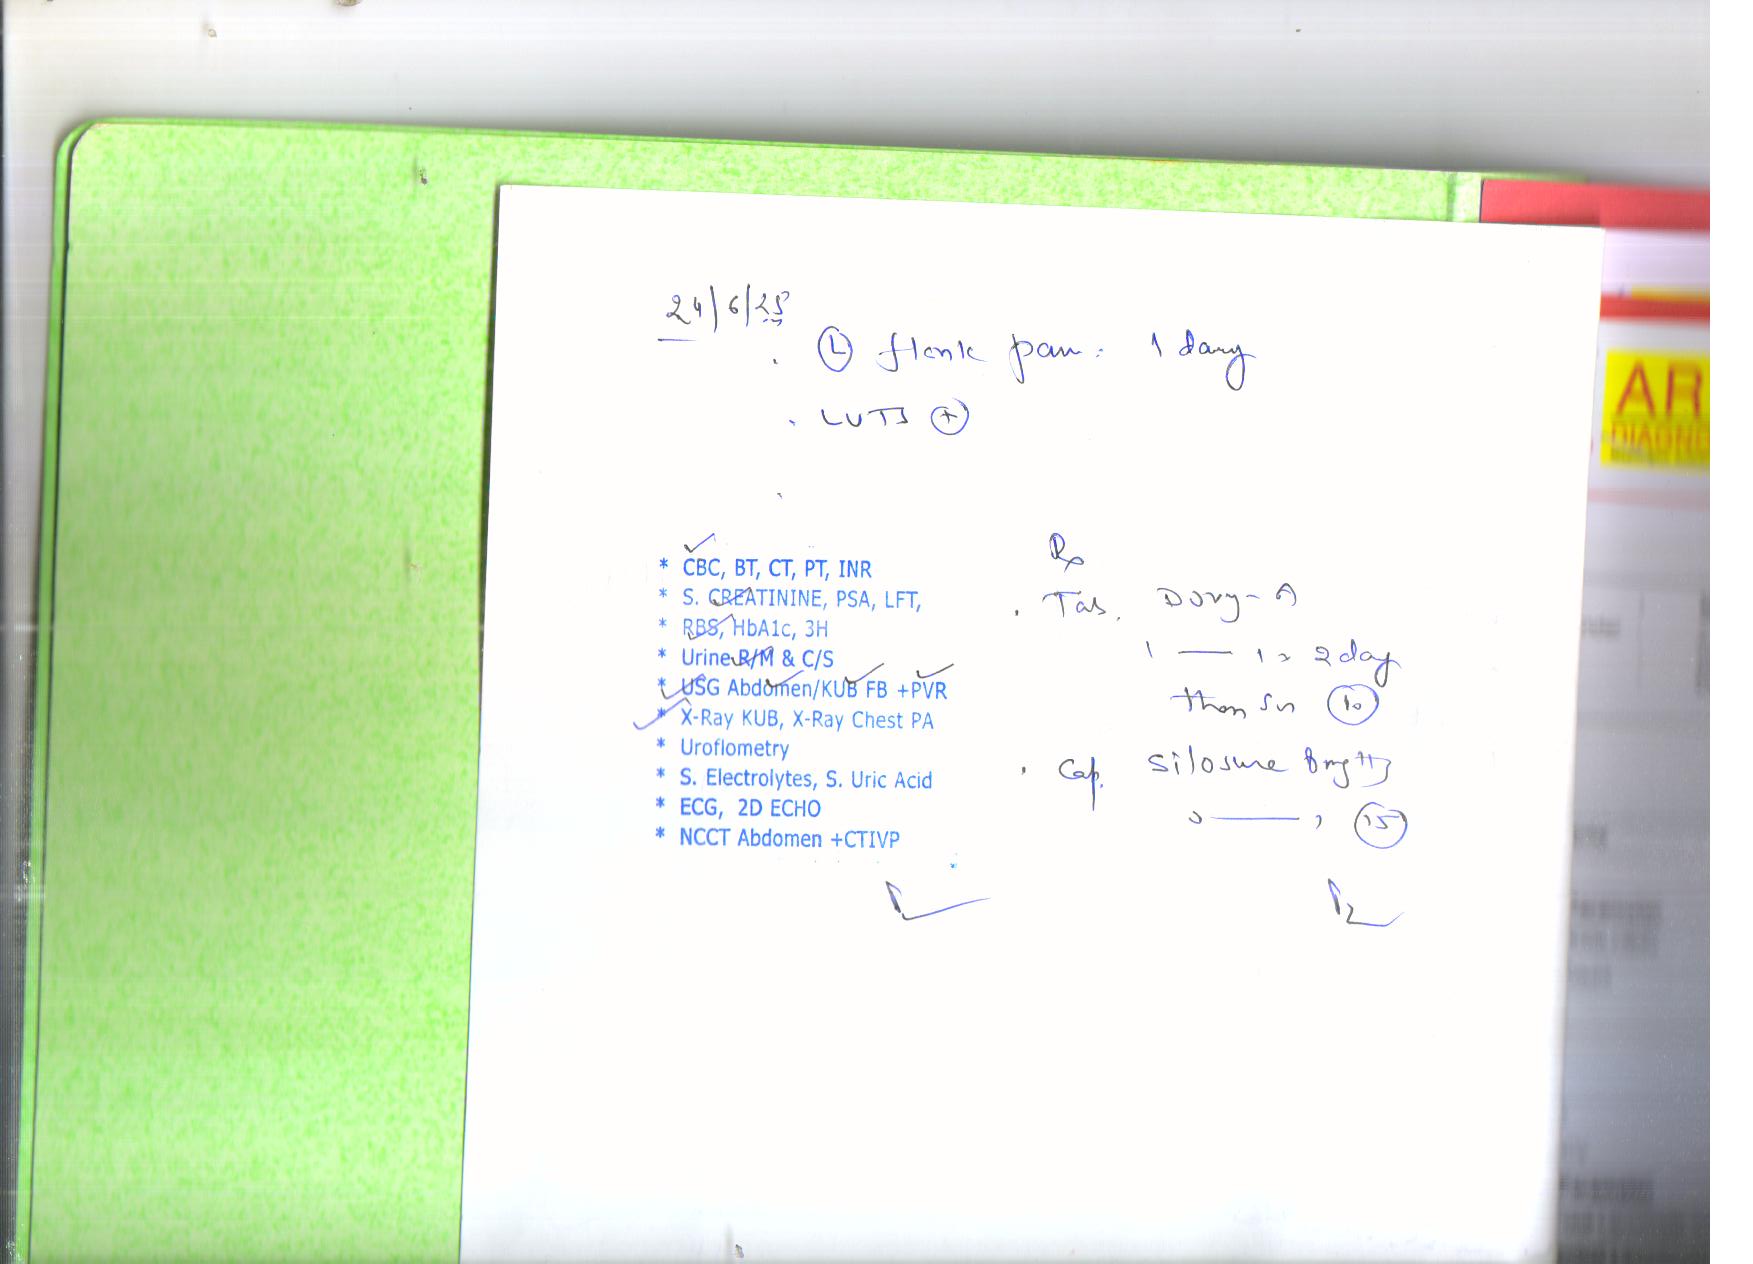 24/6/25
. Ⓛ flank pain : 1 day
. LUTS ⊕
* CBC, BT, CT, PT, INR
* S. CREATININE, PSA, LFT,
* RBS, HbA1c, 3H
* Urine R/M & C/S
* USG Abdomen/KUB FB +PVR
* X-Ray KUB, X-Ray Chest PA
* Uroflometry
* S. Electrolytes, S. Uric Acid
* ECG, 2D ECHO
* NCCT Abdomen +CTIVP
Rx
. Tab.
1 — 1 x 2 day
then ⑩
. Cap. Silosure
⑮
AR
DIAGNO